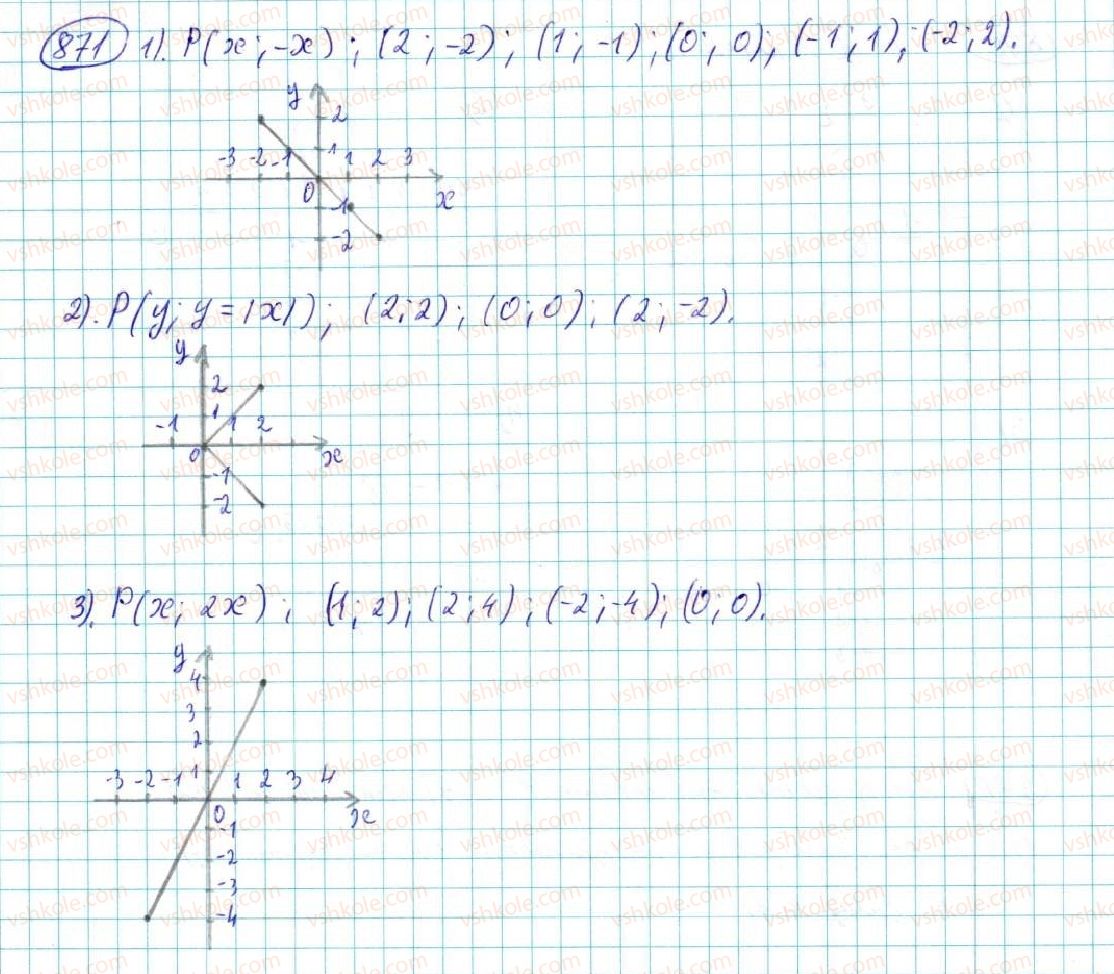 871 1). P(x; -x); (2; -2); (1; -1); (0; 0); (-1; 1); (-2; 2).
y
2
-3 -2 -1 1 1 2 3
0 x
-1
-2
2). P(y; y = |x|); (2; 2); (0; 0); (2; -2).
y
2
-1 1 1 2
0 x
-1
-2
3). P(x; 2x); (1; 2); (2; 4); (-2; -4); (0; 0).
y
4
3
2
-3 -2 -1 1 1 2 3 4
0 x
-1
-2
-3
-4
vshkole.com